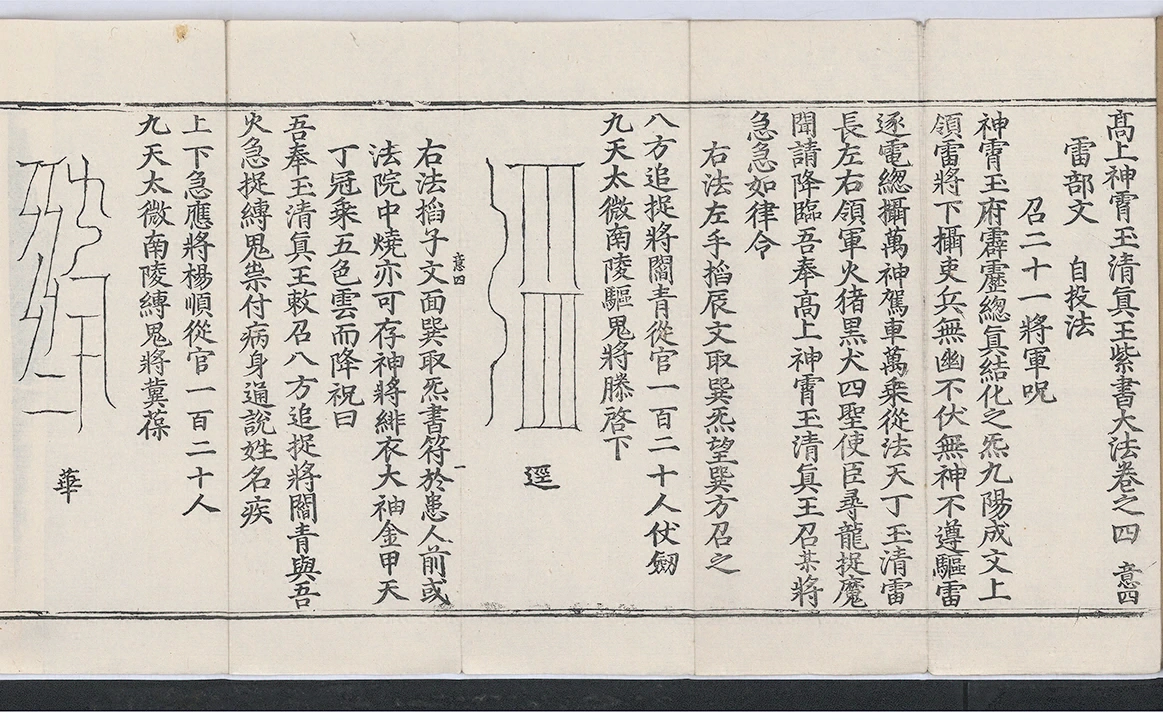 高上神霄玉清眞王紫書大法卷之四 意四
雷部文 自投法
召二十一將軍呪
神霄玉府霹靂總眞結化之炁九陽成文上
領雷將下攝吏兵無幽不伏無神不遵驅雷
逐電總攝萬神駕車萬乗從法天丁玉清雷
長左右領軍火猪黑犬四聖使臣尋龍捉魔
聞請降臨吾奉高上神霄玉清眞王召某將
急急如律令
右法左手掐辰文取巽炁望巽方召之
八方追捉將閻青從官一百二十人仗劒
九天太微南陵驅鬼將滕啓下
逕
意四
一
右法掐子文面巽取炁書符於患人前或
法院中燒亦可存神將緋衣大袖金甲天
丁冠乗五色雲而降祝曰
吾奉玉清眞王敕召八方追捉將閻青與吾
火急捉縛鬼祟付病身通說姓名疾
上下急應將楊順從官一百二十人
九天太微南陵縛鬼將冀葆
華